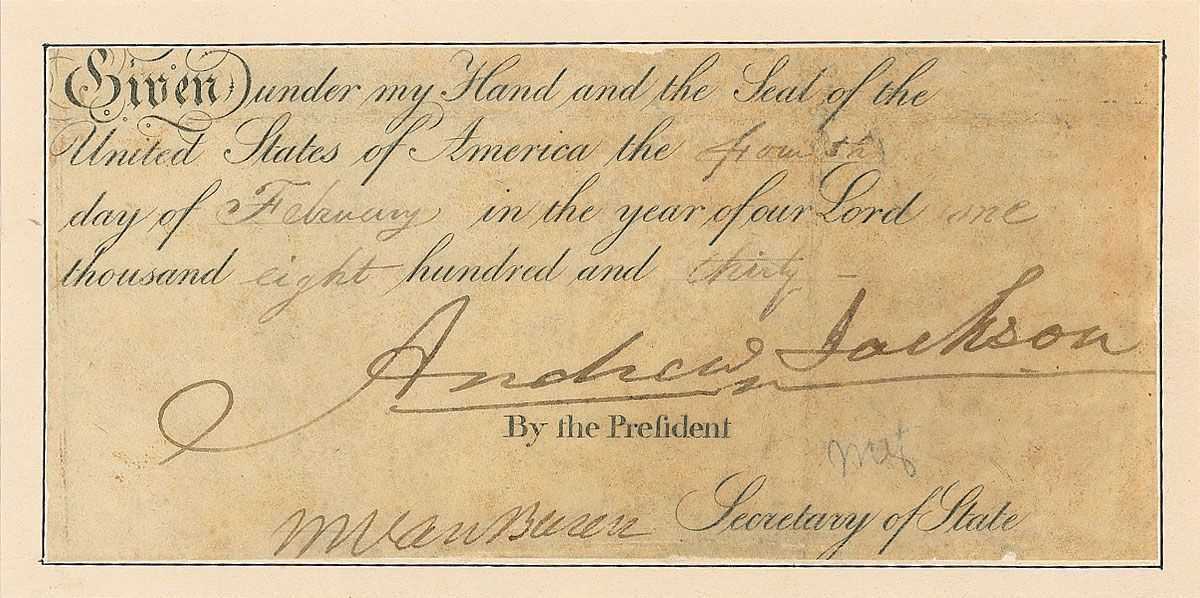 Given under my Hand and the Seal of the
United States of America the fourth
day of February in the year of our Lord one
thousand eight hundred and thirty -
Andrew Jackson
By the Preſident
MVan Buren Secretary of State